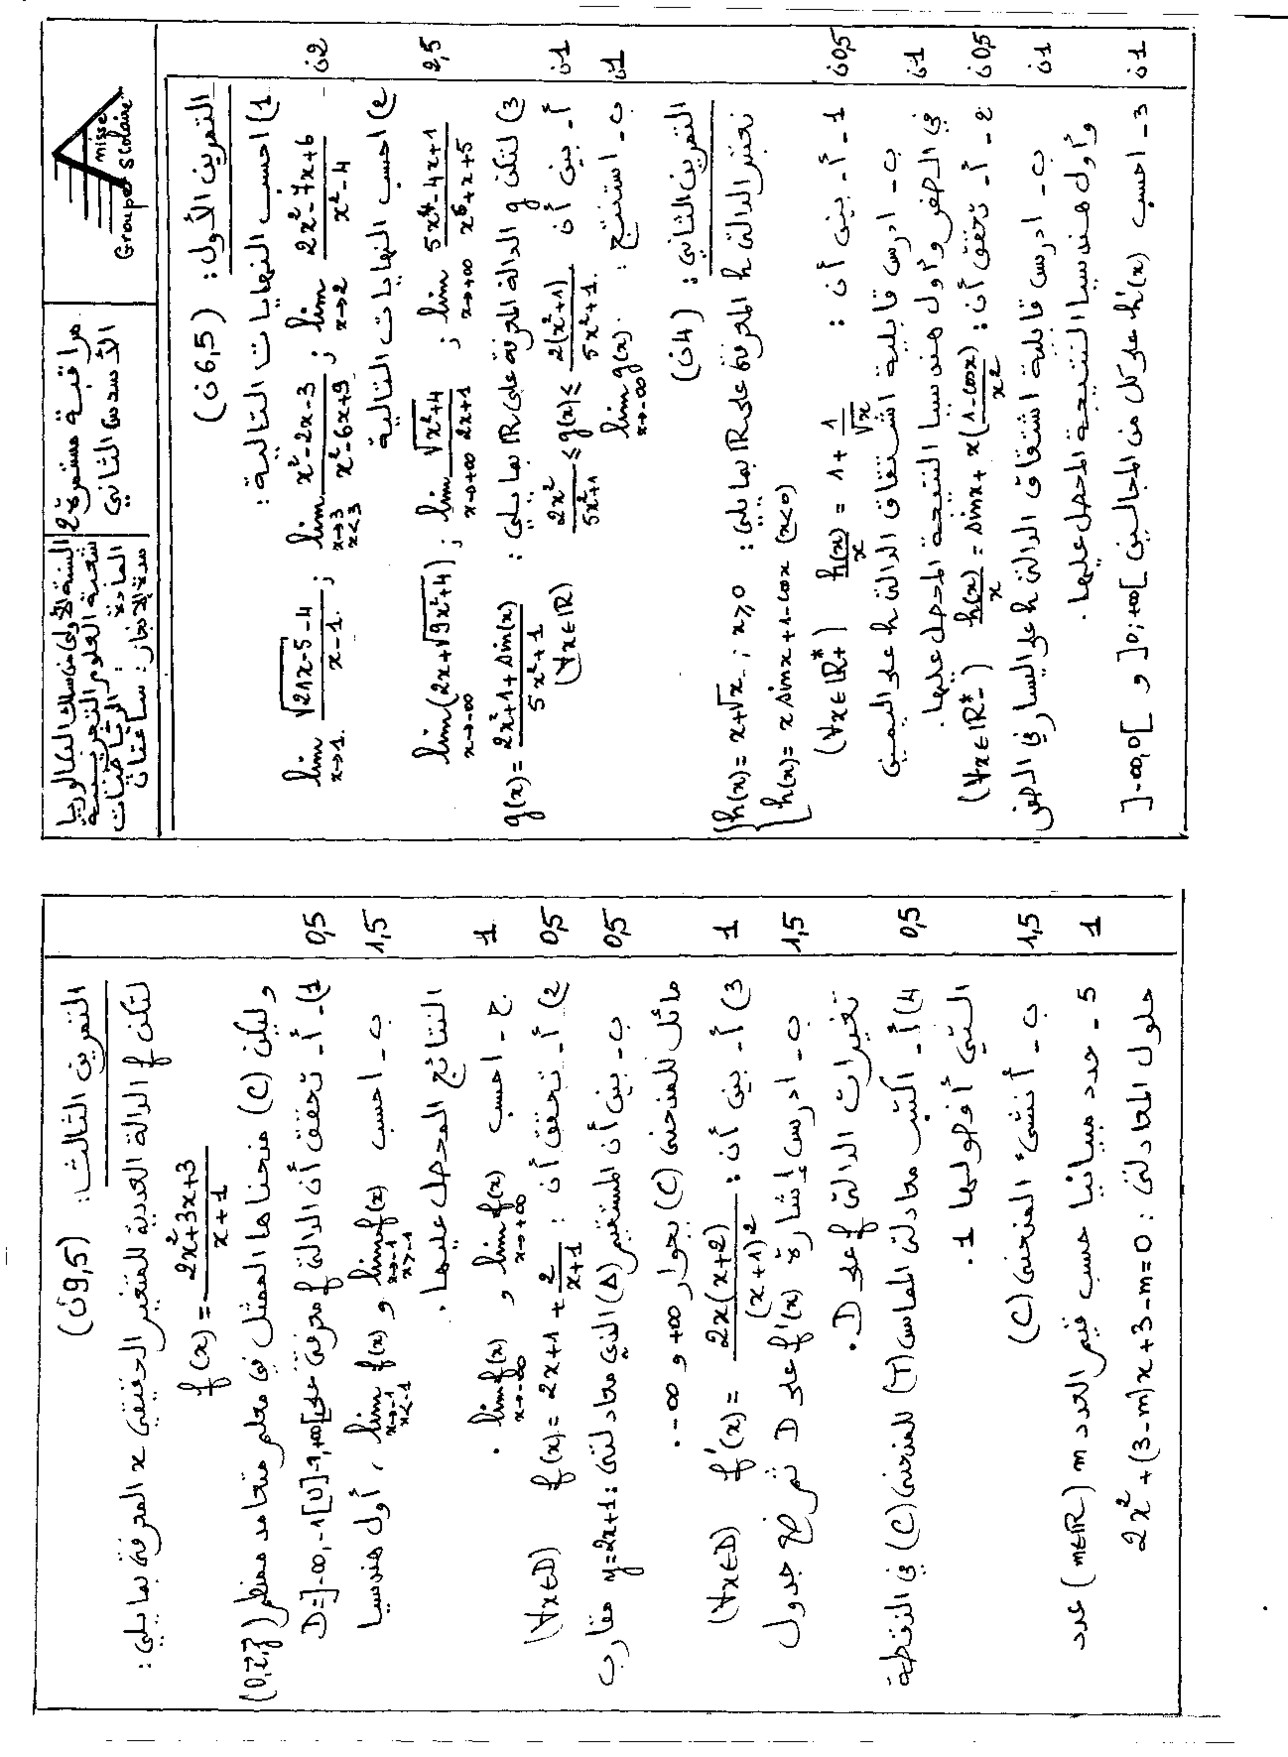 السنة الأولى من سلك البكالوريا
شعبة العلوم التجريبية
المادة : الرياضيات
مدة الإنجاز : ساعتان
مراقبة مستمرة 2
الأسدس الثاني
Anisse
Groupe Scolaire
التمرين الأول : (6,5ن)
1) احسب النهايات التالية :
lim x→1 (√(21x-5) - 4)/(x-1) ; lim x→3 x<3 (x²-2x-3)/(x²-6x+9) ; lim x→2 (2x²-7x+6)/(x²-4) 2ن
2) احسب النهايات التالية
lim x→-∞ (2x+√(9x²+4)) ; lim x→+∞ √(x²+4)/(2x+1) ; lim x→+∞ (5x⁴-4x+1)/(x⁶+x+5) 2,5
3) لتكن g الدالة المعرفة على IR بما يلي : g(x) = (2x²+1+sin(x))/(5x²+1)
أ - بين أن (∀x∈IR) 2x²/(5x²+1) ≤ g(x) ≤ 2(x²+1)/(5x²+1) 1ن
ب - استنتج : lim x→-∞ g(x) 1ن
التمرين الثاني : (4ن)
نعتبر الدالة h المعرفة على IR بما يلي :
{ h(x) = x+√x ; x≥0
h(x) = x sinx + 1 - cosx (x<0)
1 - أ - بين أن : (∀x∈IR*+) h(x)/x = 1 + 1/√x 0,5ن
ب - ادرس قابلية اشتقاق الدالة h على اليمين 1ن
في الصفر و أول هندسيا النتيجة المحصل عليها.
2 - أ - تحقق أن : (∀x∈IR*-) h(x)/x = sinx + x((1-cosx)/x²) 0,5ن
ب - ادرس قابلية اشتقاق الدالة h على اليسار في الصفر 1ن
وأول هندسيا النتيجة المحصل عليها.
3 - احسب h'(x) على كل من المجالين ]0;+∞[ و ]-∞,0[ 1ن
التمرين الثالث : (9,5ن)
لتكن f الدالة العددية للمتغير الحقيقي x المعرفة بما يلي :
f(x) = (2x²+3x+3)/(x+1)
وليكن (C) منحناها الممثل في معلم متعامد ممنظم (O,i,j)
1) - أ - تحقق أن الدالة f معرفة على D=]-∞,-1[∪]-1,+∞[ 0,5
ب - احسب lim x→-1 x>-1 f(x) و lim x→-1 x<-1 f(x) ، أول هندسيا 1,5
النتائج المحصل عليها.
ج - احسب lim x→+∞ f(x) و lim x→-∞ f(x). 1
2) أ - تحقق أن : (∀x∈D) f(x) = 2x+1 + 2/(x+1) 0,5
ب - بين أن المستقيم (Δ) الذي معادلته : y=2x+1 مقارب 0,5
مائل للمنحنى (C) بجوار +∞ و -∞.
3) أ - بين أن : (∀x∈D) f'(x) = 2x(x+2)/(x+1)² 1
ب - ادرس إشارة f'(x) على D ثم ضع جدول 1,5
تغيرات الدالة f على D.
4) أ - اكتب معادلة المماس (T) للمنحنى (C) في النقطة 0,5
التي أفصولها 1.
ب - أنشئ المنحنى (C) 1,5
5 - حدد مبيانيا حسب قيم العدد m (m∈IR) عدد 1
حلول المعادلة : 2x²+(3-m)x+3-m=0